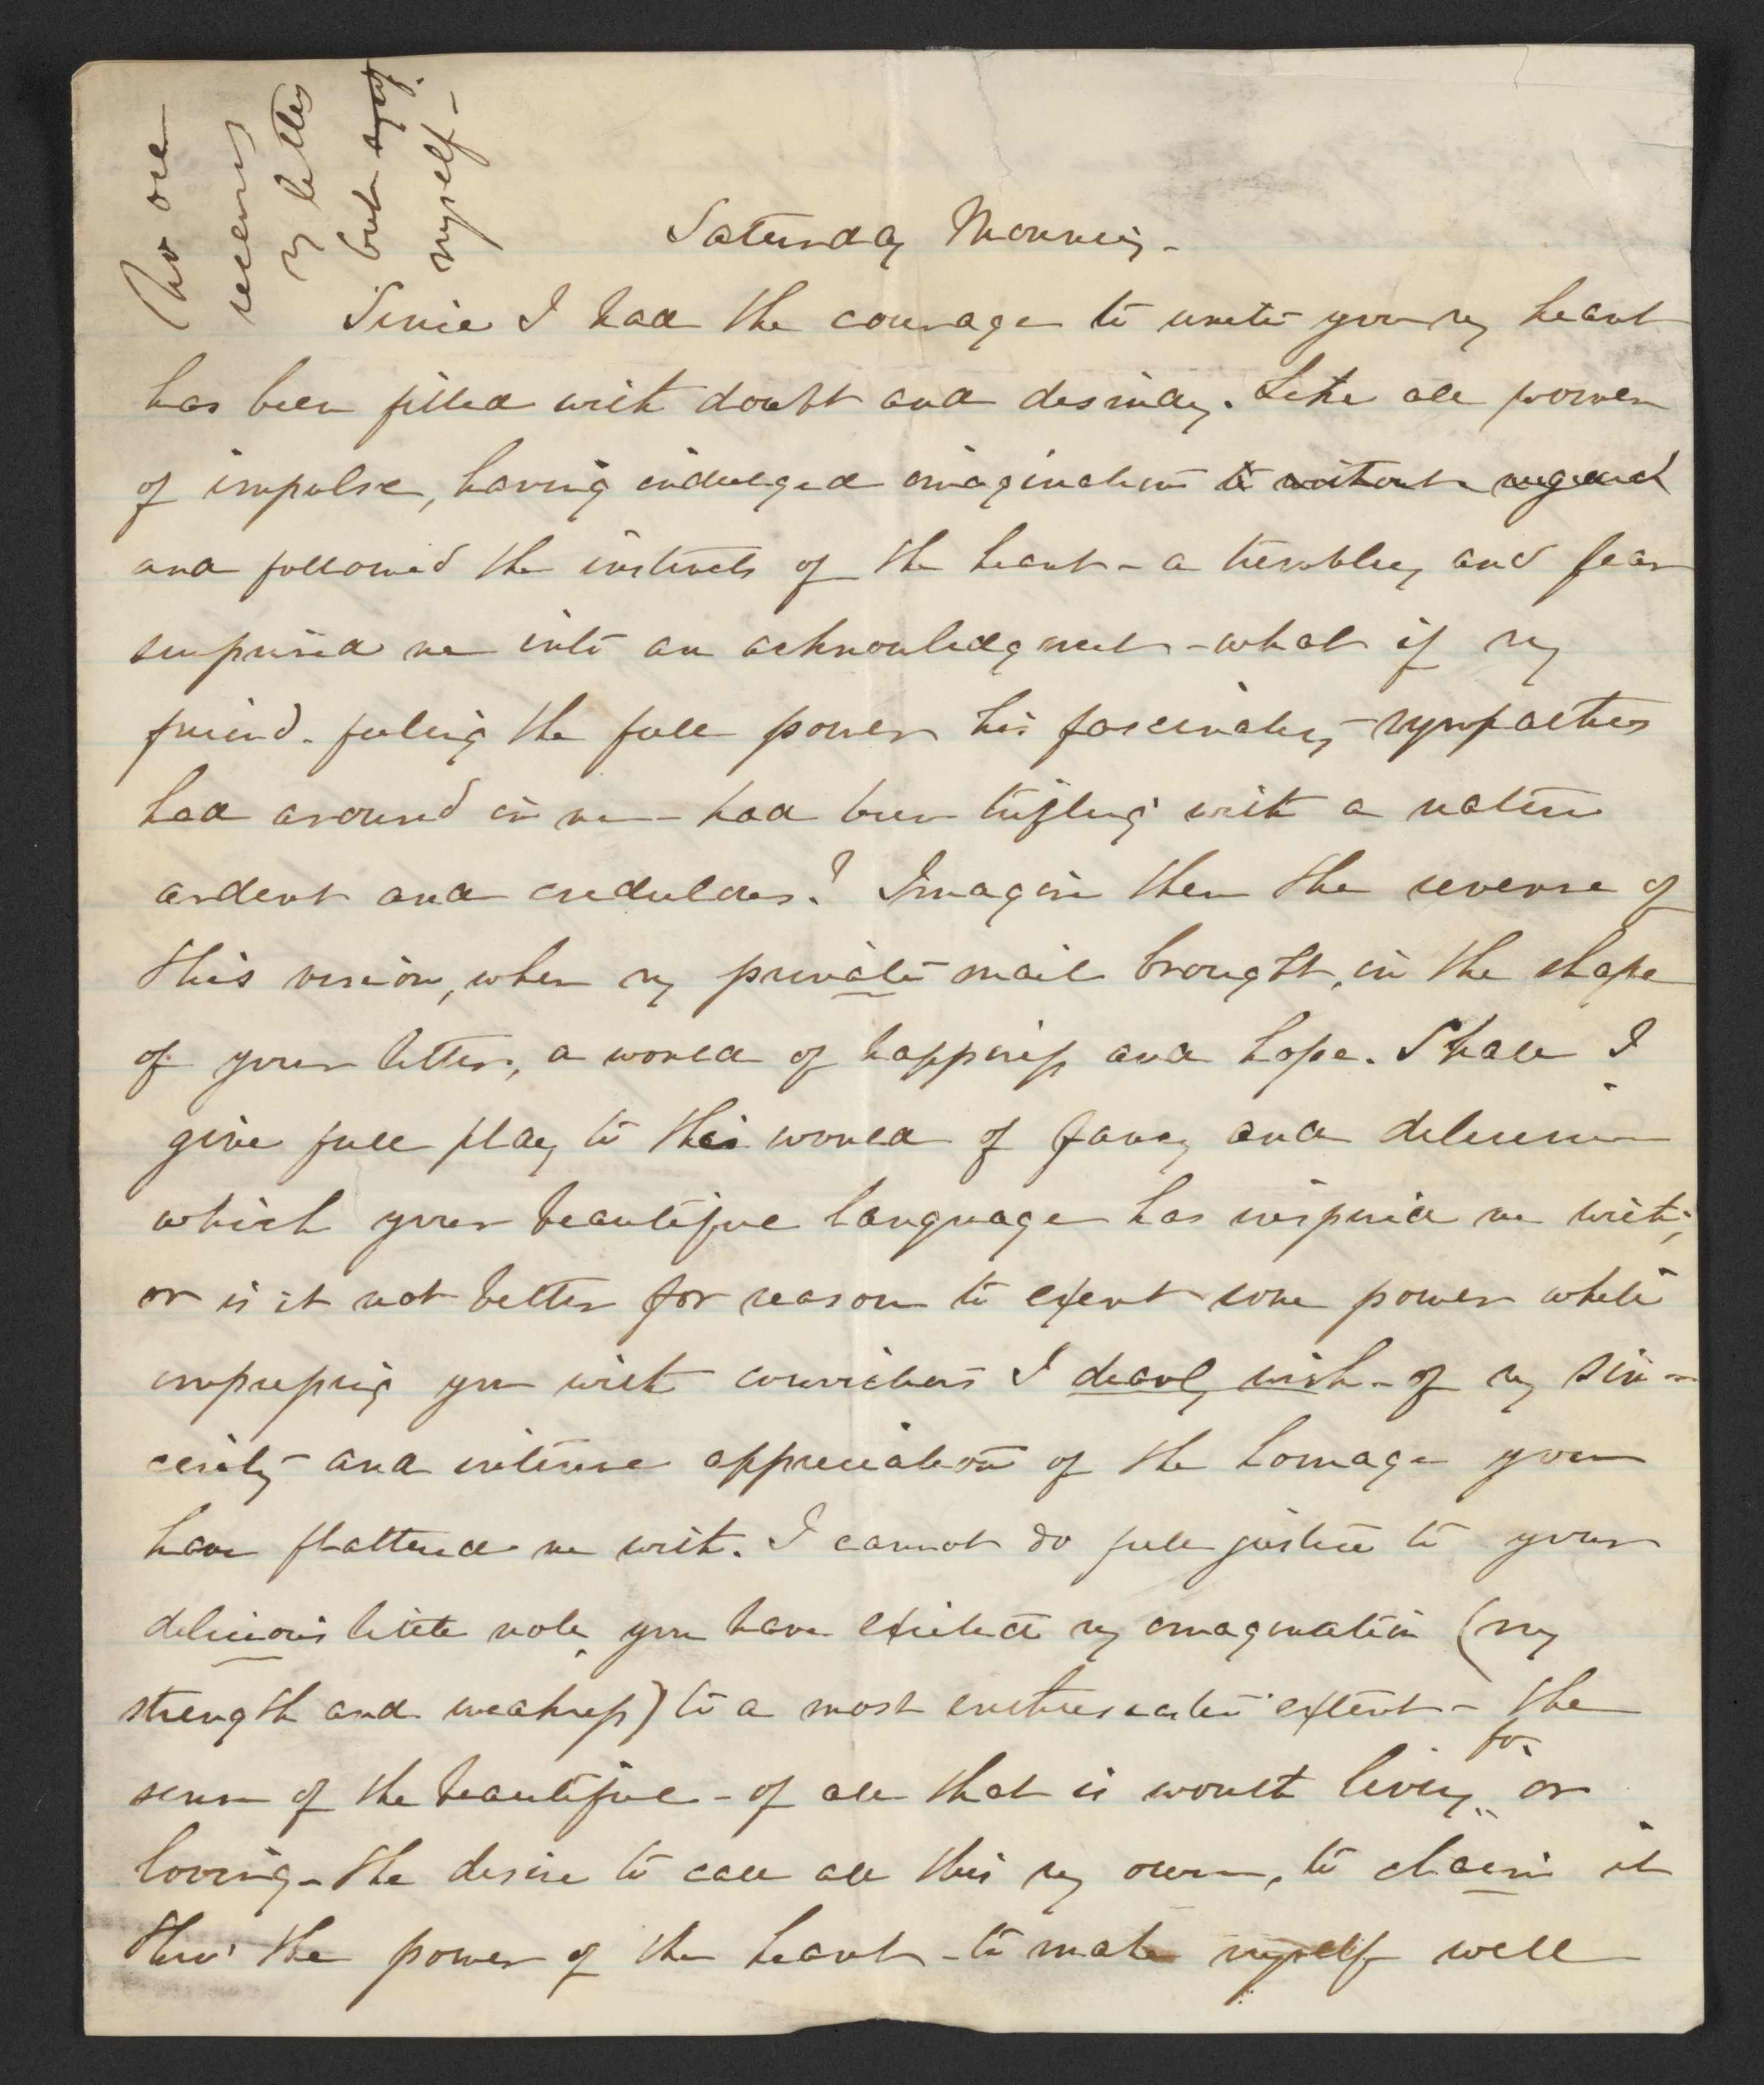 No one
receives
my letters
but
myself -
Saturday Morning -
Since I had the courage to write you my heart
has been filled with doubt and dismay. Like all women
of impulse, having indulged imagination to without regard
and followed the instincts of the heart - a trembling and fear
surprised me into an acknowledgment - what if my
friend - feeling the full power his fascinating sympathies
had aroused in me - had been trifling with a nature
ardent and credulous? Imagine then the reverse of
this vision, when my private mail brought, in the shape
of your letter, a world of happiness and hope. Shall I
give full play to this world of fancy and delirium
which your beautiful language has inspired me with;
or is it not better for reason to exert some power while
impressing you with convictions I dearly wish - of my sin-
cerity - and intense appreciation of the homage you
have flattered me with. I cannot do full justice to your
delicious little note, you have excited my imagination (my
strength and weakness) to a most extent - the
sense of the beautiful - of all that is worth living for or
loving - the desire to call all this my own, to claim it
thro' the power of the heart - to make myself well